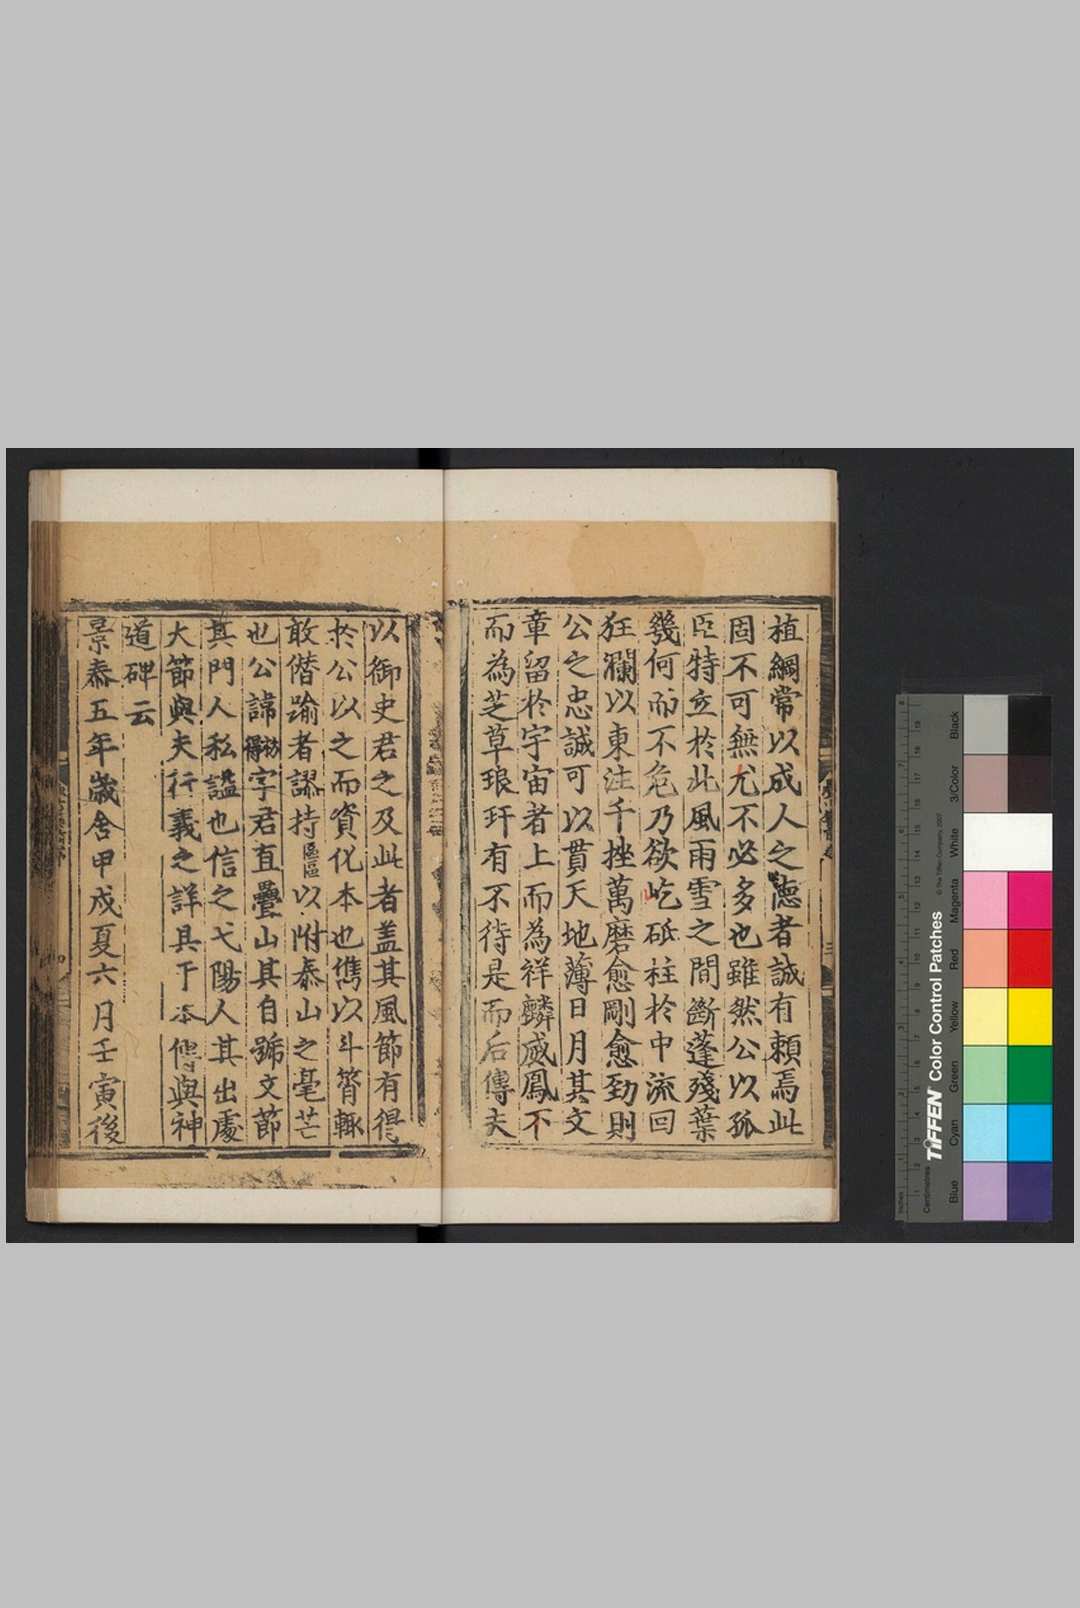 植綱常以成人之德者誠有賴焉此
固不可無尤不必多也雖然公以孤
臣特立於此風雨雪之間斷蓬殘葉
幾何而不危乃欲屹砥柱於中流回
狂瀾以東注千挫萬磨愈剛愈勁則
公之忠誠可以貫天地薄日月其文
章留於宇宙者上而為祥麟威鳳不
而為芝草琅玕有不待是而后傳夫
以御史君之及此者蓋其風節有得
於公以之而資化本也儁以斗筲輒
敢僭踰者謬持區區以附泰山之毫芒
也公諱枋得字君直疊山其自號文節
其門人私謚也信之弋陽人其出處
大節與夫行義之詳具于本傳與神
道碑云
景泰五年歲舍甲戌夏六月壬寅後
TIFFEN Color Control Patches
© The Tiffen Company, 2007
Inches
Centimetres
Blue Cyan Green Yellow Red Magenta White 3/Color Black